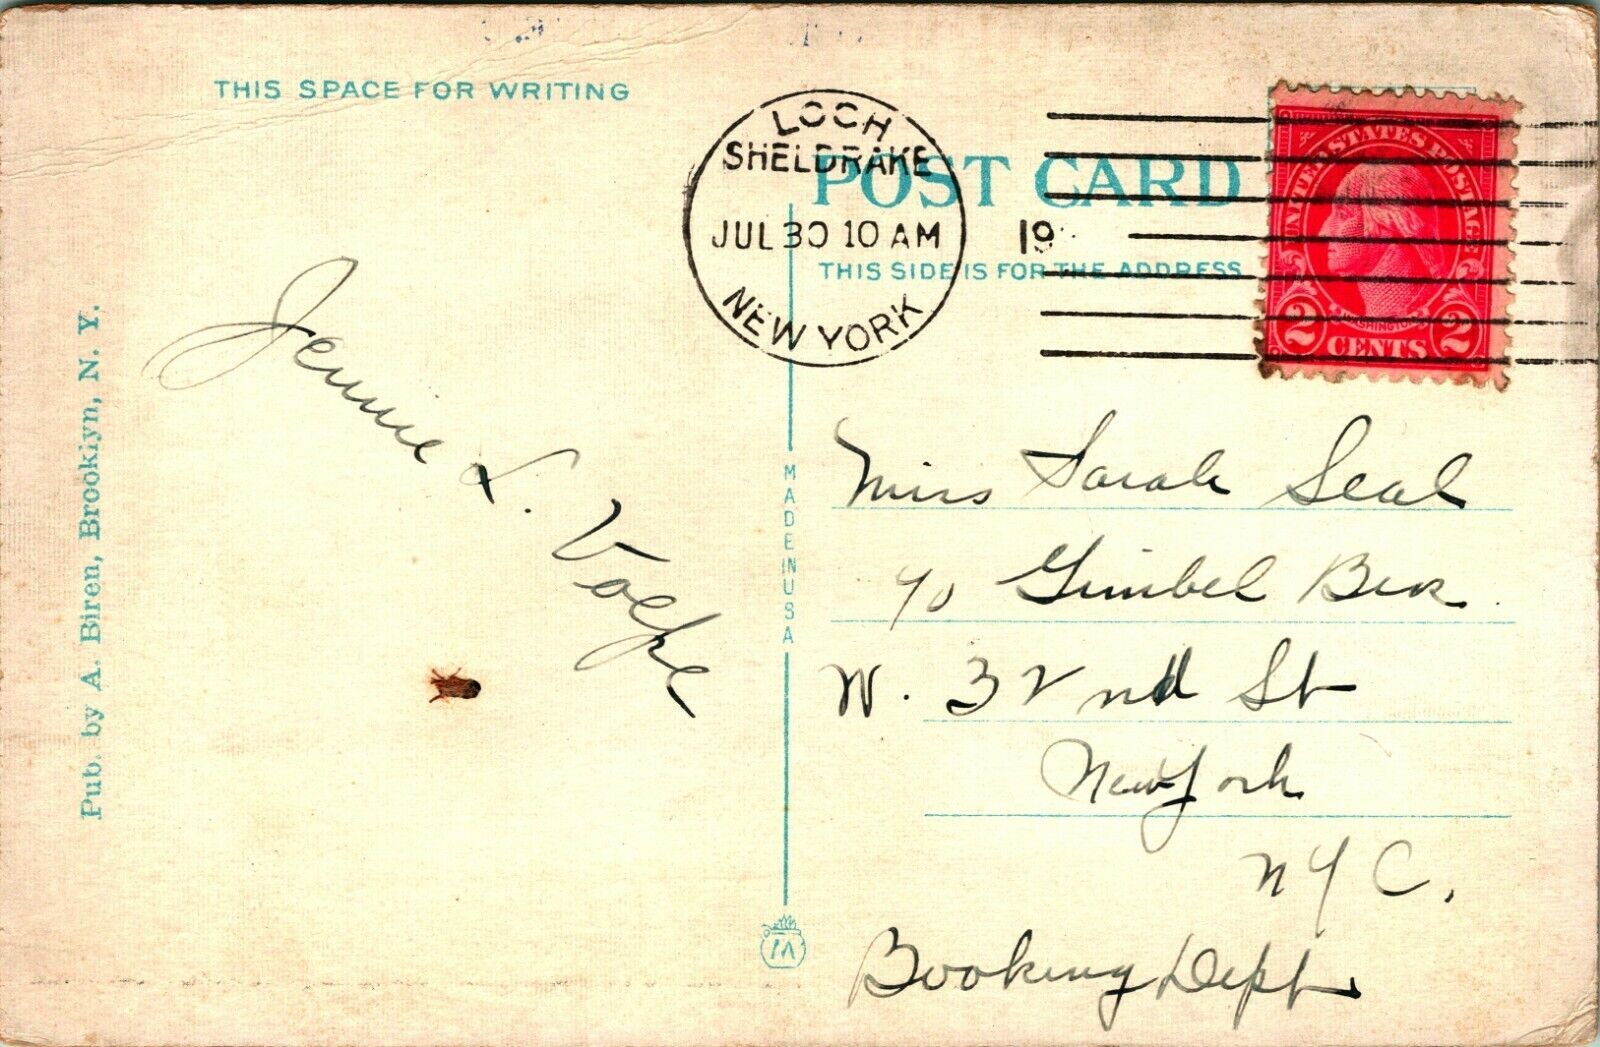 THIS SPACE FOR WRITING
LOCH
SHELDRAKE
JUL 30 10 AM
NEW YORK
19
POST CARD
THIS SIDE IS FOR THE ADDRESS
UNITED STATES POSTAGE
WASHINGTON
2 CENTS 2
Pub. by A. Biren, Brooklyn, N. Y.
Jennie L. Volpe
MADE IN USA
Miss Sarah Seal
c/o Gimbel Bros.
W. 32nd St
New York
NYC.
Booking Dept.